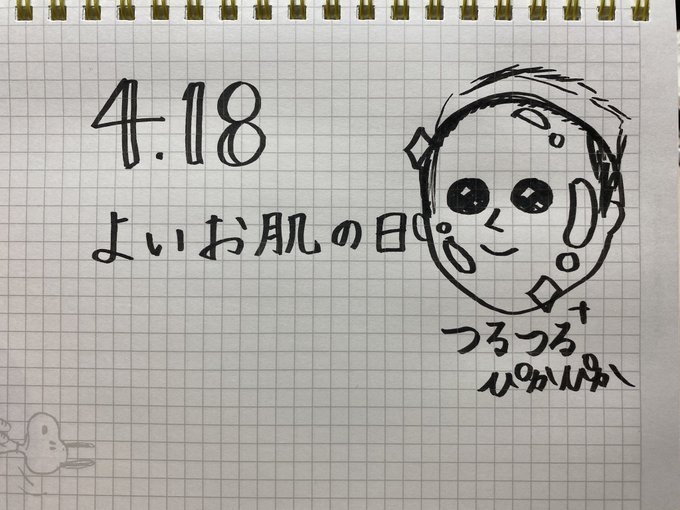 4.18
よいお肌の日
つるつる
ぴかぴか